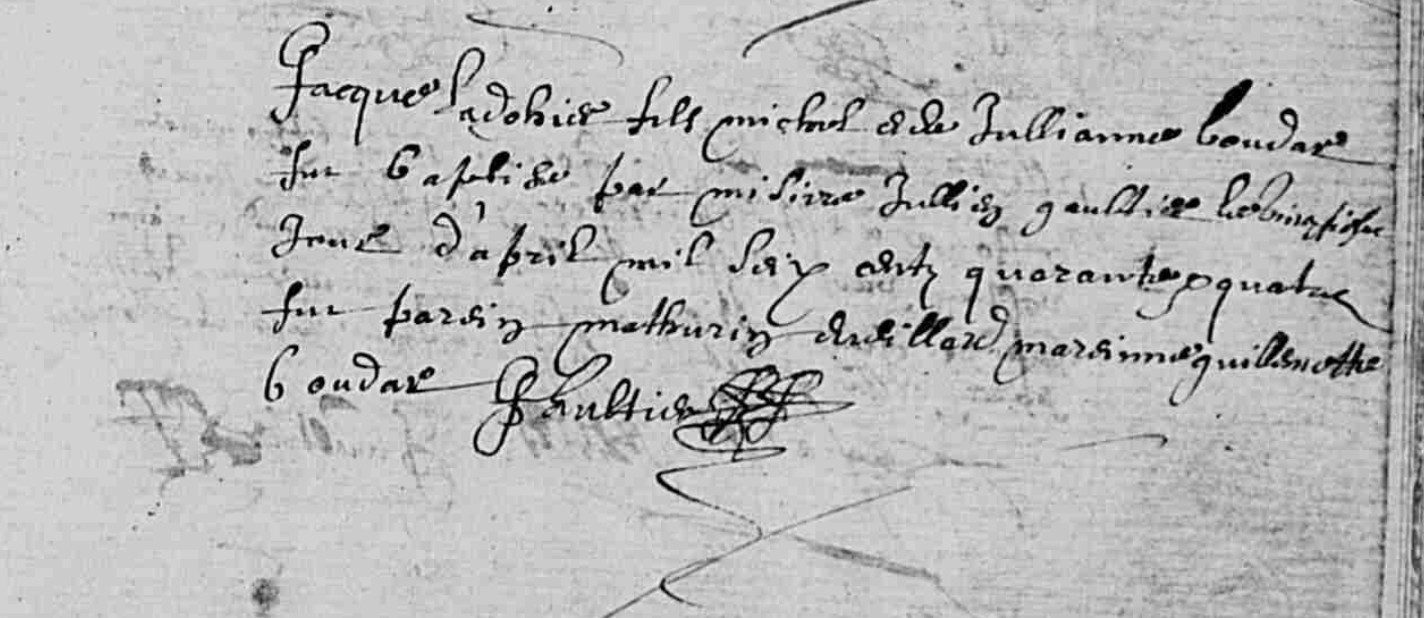 Jacques Ladohier fils michel et de Jullianne boudar
fut baptise par missire Jullien gaultier le vingtsixe
Jour d'apvril mil seix centz quarante quatre
fut parein mathurin mareinne guillemette
boudar Gaultier